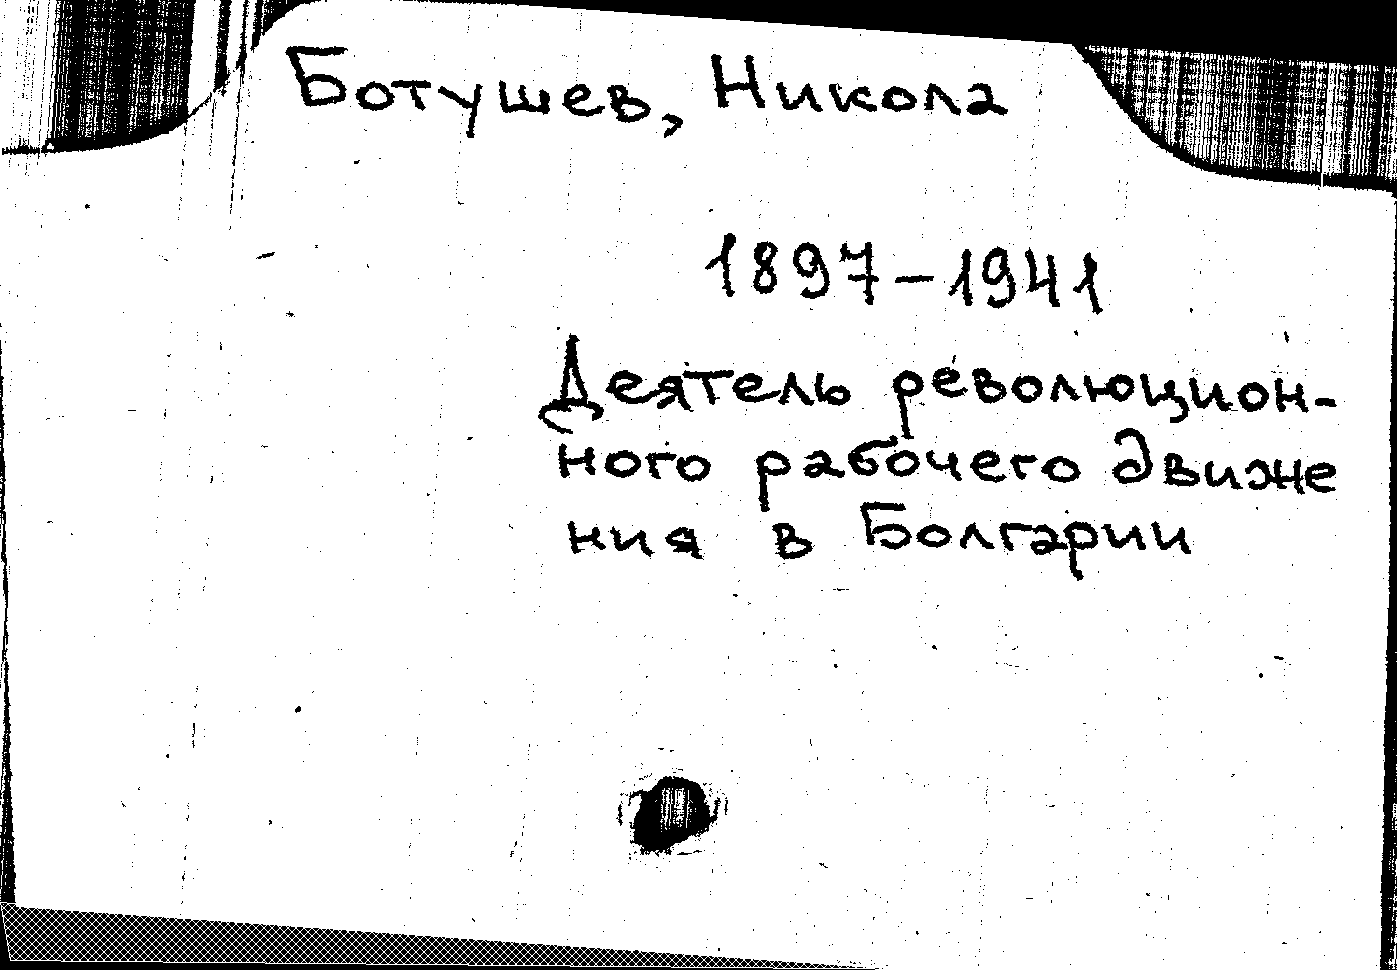 Ботушев, Никола
1897-1941
Деятель революцион-
ного рабочего движе
ния в Болгарии